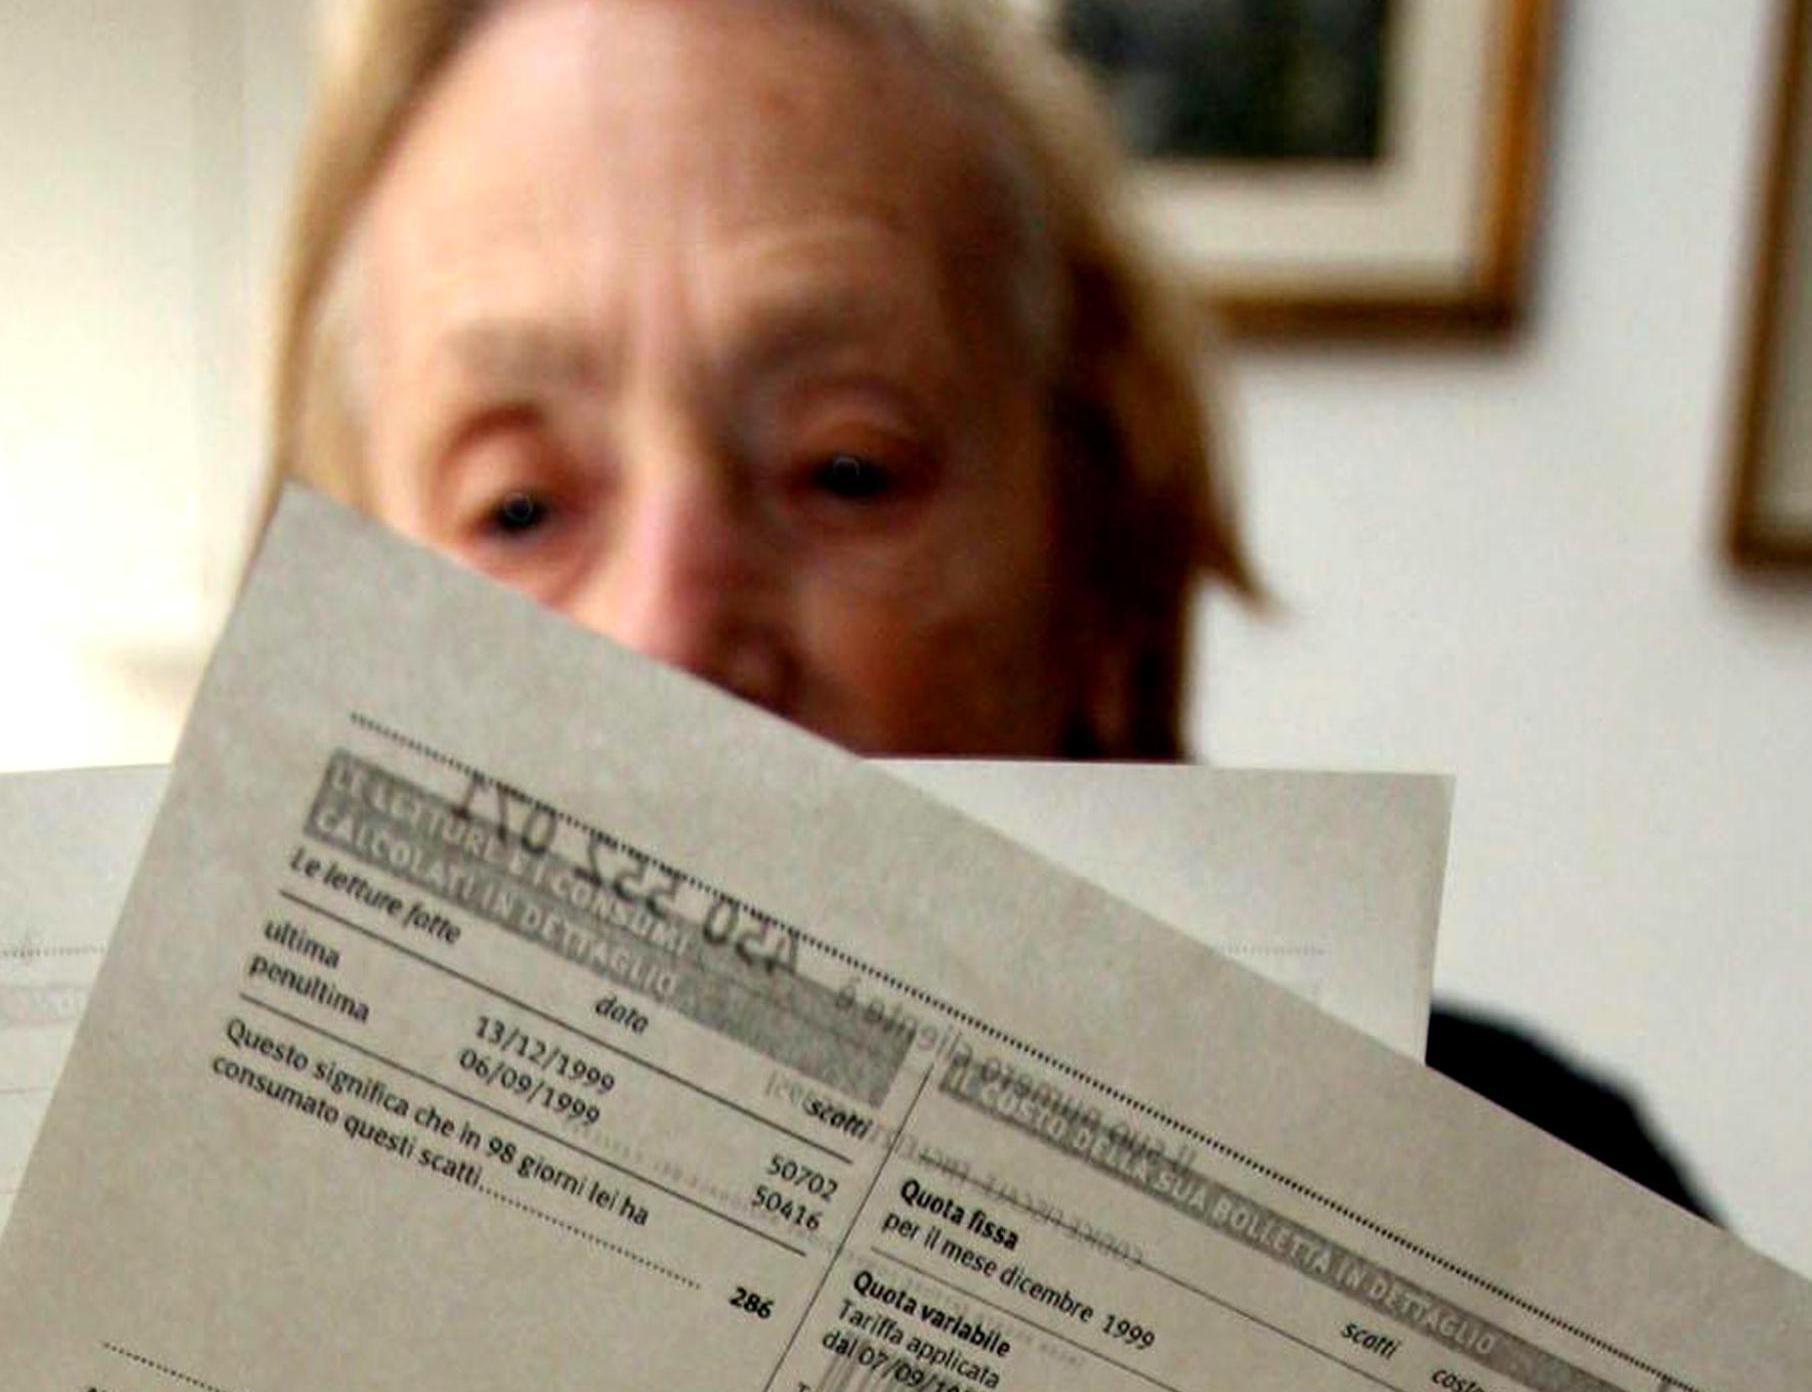 LE LETTURE E I CONSUMI
CALCOLATI IN DETTAGLIO
Le letture fatte
data
scatti
ultima
13/12/1999
50702
penultima
06/09/1999
50416
Questo significa che in 98 giorni lei ha
consumato questi scatti
286
IL COSTO DELLA SUA BOLLETTA IN DETTAGLIO
scatti
Quota fissa
per il mese dicembre 1999
Quota variabile
Tariffa applicata
dal 07/09/